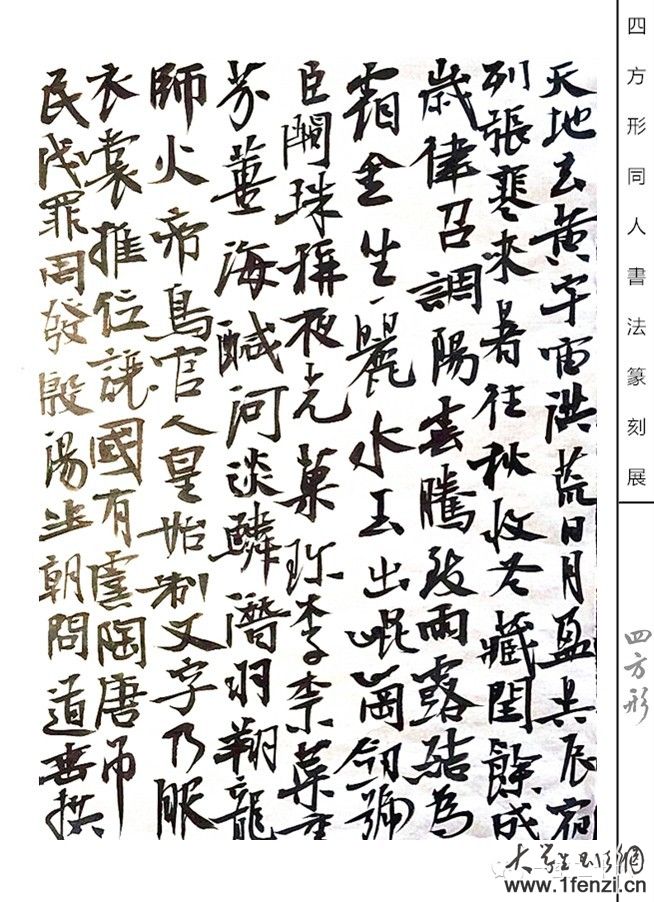 四方形同人書法篆刻展
四方形
天地玄黄宇宙洪荒日月盈昃辰宿
列張寒來暑往秋收冬藏閏餘成
歲律召調陽雲騰致雨露結為
霜金生麗水玉出崐崗劒號
巨闕珠稱夜光菓珍李柰菜重
芥薑海鹹河淡鱗潛羽翔龍
師火帝鳥官人皇始制文字乃服
衣裳推位讓國有虞陶唐弔
民伐罪周發殷湯坐朝問道垂拱
www.1fenzi.cn